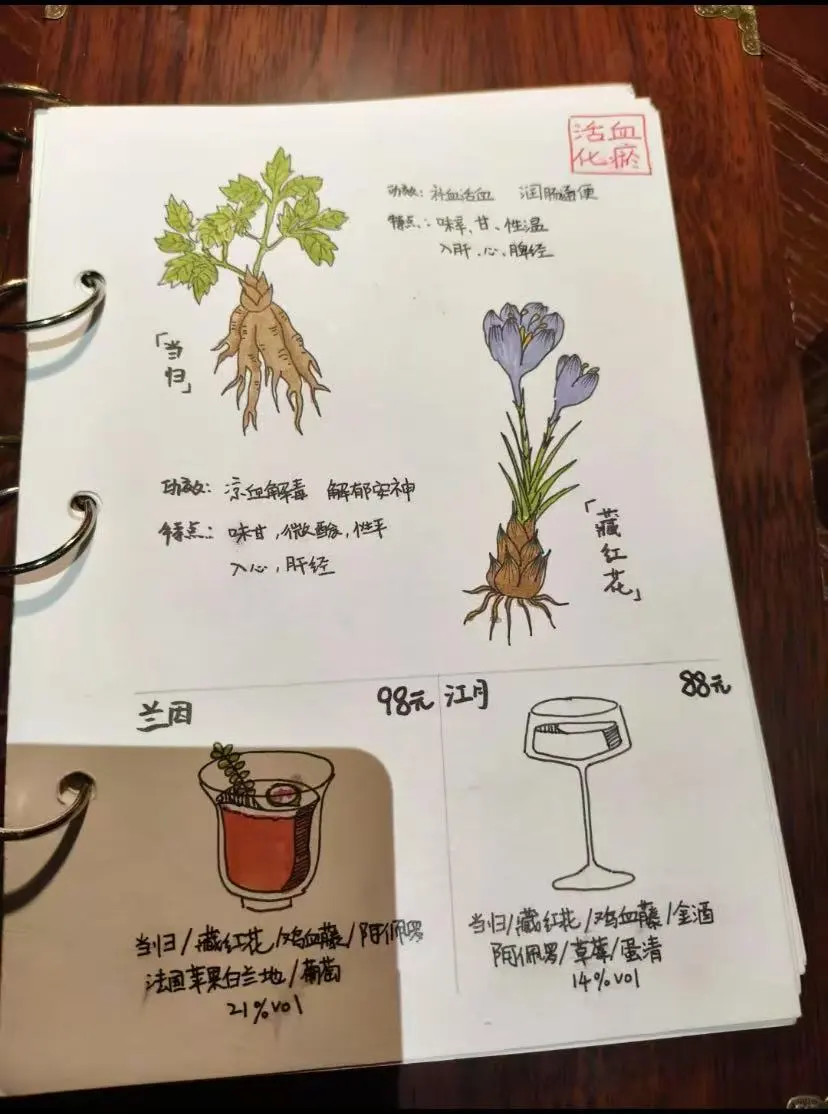 活血
化瘀
功效：补血活血 润肠通便
特点：味辛，甘，性温
入肝、心、脾经
「当归」
功效：凉血解毒 解郁安神
特点：味甘，微酸，性平
入心，肝经
「藏红花」
兰因 98元
当归/藏红花/鸡血藤/阿佩罗
法国苹果白兰地/葡萄
21%vol
江月 88元
当归/藏红花/鸡血藤/金酒
阿佩罗/草莓/蛋清
14%vol